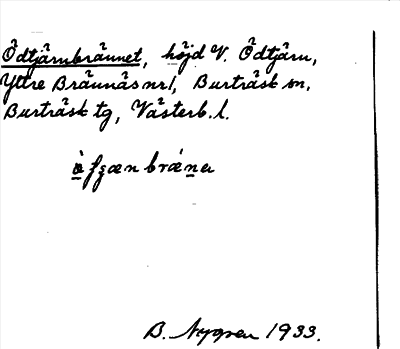 Ödtjärnbrännet, höjd V. Ödtjärn,
Yttre Bräunäs nr 1, Burträsk sn,
Burträsk tg, Västerb. l.
B. Nygren 1933.